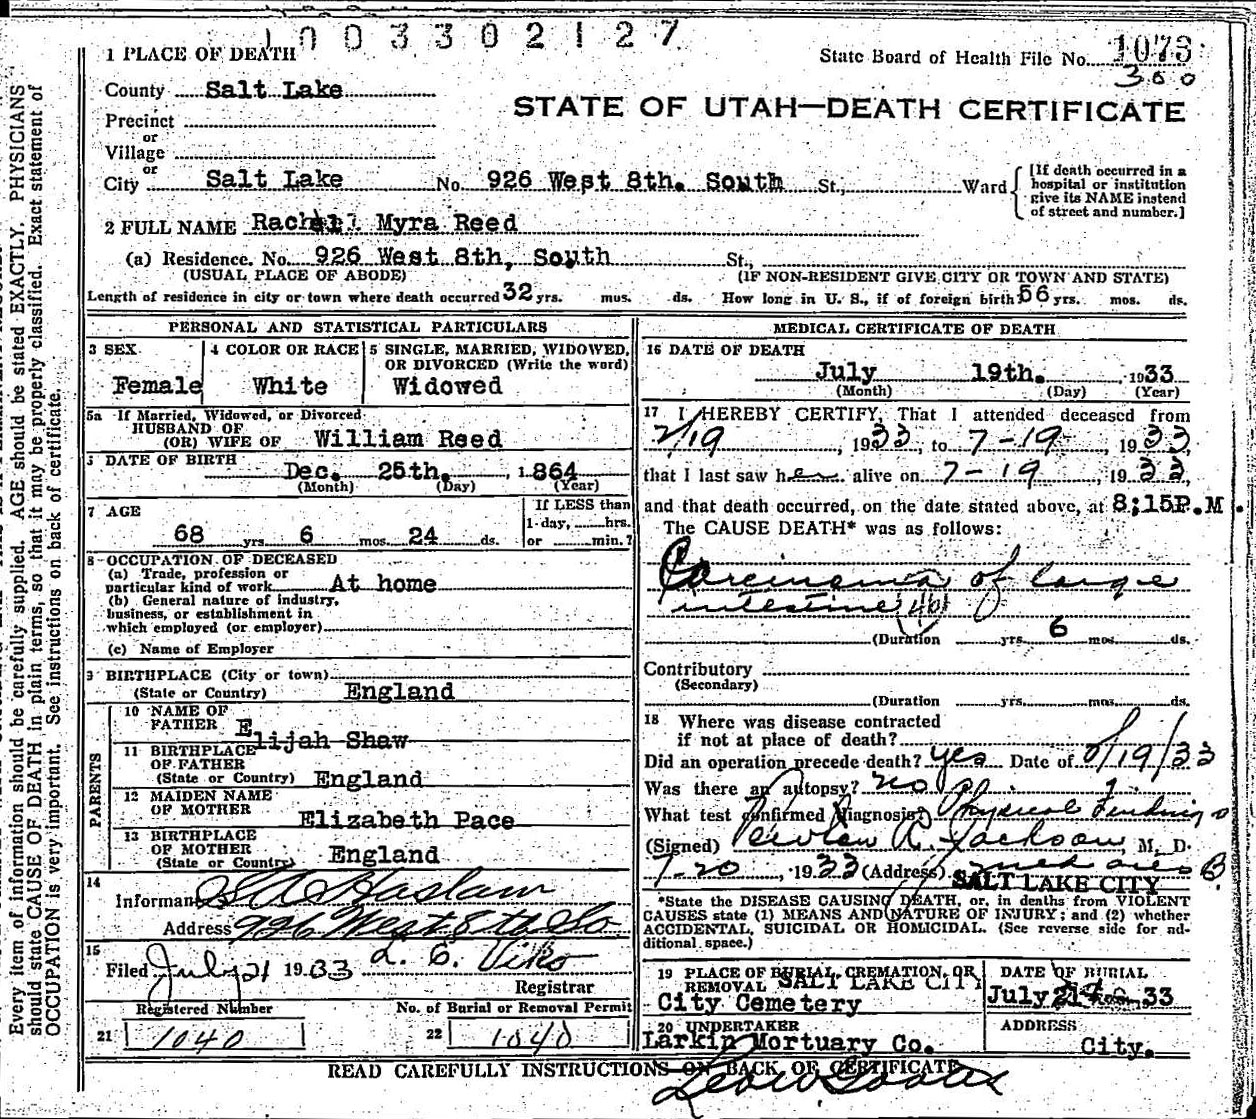 1003302127
1 PLACE OF DEATH
State Board of Health File No. 1073
300
County Salt Lake
STATE OF UTAH—DEATH CERTIFICATE
Precinct
or
Village
or
City Salt Lake No. 926 West 8th. South St., Ward
[If death occurred in a
hospital or institution
give its NAME instead
of street and number.]
2 FULL NAME Rachel Myra Reed
(a) Residence. No. 926 West 8th, South St.,
(USUAL PLACE OF ABODE) (IF NON-RESIDENT GIVE CITY OR TOWN AND STATE)
Length of residence in city or town where death occurred 32 yrs. mos. ds. How long in U. S., if of foreign birth? 56 yrs. mos. ds.
PERSONAL AND STATISTICAL PARTICULARS
3 SEX
Female
4 COLOR OR RACE
White
5 SINGLE, MARRIED, WIDOWED,
OR DIVORCED (Write the word)
Widowed
5a If Married, Widowed, or Divorced
HUSBAND OF
(OR) WIFE OF William Reed
DATE OF BIRTH
Dec. 25th. 1864
(Month) (Day) (Year)
7 AGE
68 yrs. 6 mos. 24 ds.
If LESS than
1-day, hrs.
or min.?
8 OCCUPATION OF DECEASED
(a) Trade, profession or
particular kind of work At home
(b) General nature of industry,
business, or establishment in
which employed (or employer)
(c) Name of Employer
9 BIRTHPLACE (City or town)
(State or Country) England
PARENTS
10 NAME OF
FATHER Elijah Shaw
11 BIRTHPLACE
OF FATHER
(State or Country) England
12 MAIDEN NAME
OF MOTHER
Elizabeth Pace
13 BIRTHPLACE
OF MOTHER
(State or Country) England
14
Informant Haslam
Address 926 West 8th So
15
Filed July 21 1933 L. C. Viko
Registrar
Registered Number No. of Burial or Removal Permit
21 1040 22 1040
MEDICAL CERTIFICATE OF DEATH
16 DATE OF DEATH
July 19th. 1933
(Month) (Day) (Year)
17 I HEREBY CERTIFY, That I attended deceased from
7/19, 1933, to 7-19, 1933,
that I last saw her alive on 7-19, 1933,
and that death occurred, on the date stated above, at 8;15P.M.
The CAUSE DEATH* was as follows:
Carcinoma of large
intestine 46
(Duration yrs. 6 mos. ds.
Contributory
(Secondary)
(Duration yrs. mos. ds.
18 Where was disease contracted
if not at place of death?
Did an operation precede death? yes Date of /19/33
Was there an autopsy? no
What test confirmed diagnosis? Physical Findings
(Signed) Jackson, M. D.
7-20, 1933 (Address)
SALT LAKE CITY
*State the DISEASE CAUSING DEATH, or, in deaths from VIOLENT
CAUSES state (1) MEANS AND NATURE OF INJURY; and (2) whether
ACCIDENTAL, SUICIDAL OR HOMICIDAL. (See reverse side for ad-
ditional space.)
19 PLACE OF BURIAL, CREMATION, OR
REMOVAL SALT LAKE CITY
City Cemetery
DATE OF BURIAL
July 21 33
20 UNDERTAKER
Larkin Mortuary Co.
ADDRESS
City.
READ CAREFULLY INSTRUCTIONS ON BACK OF CERTIFICATE
Every item of information should be carefully supplied. AGE should be stated EXACTLY. PHYSICIANS
should state CAUSE OF DEATH in plain terms, so that it may be properly classified. Exact statement of
OCCUPATION is very important. See instructions on back of certificate.